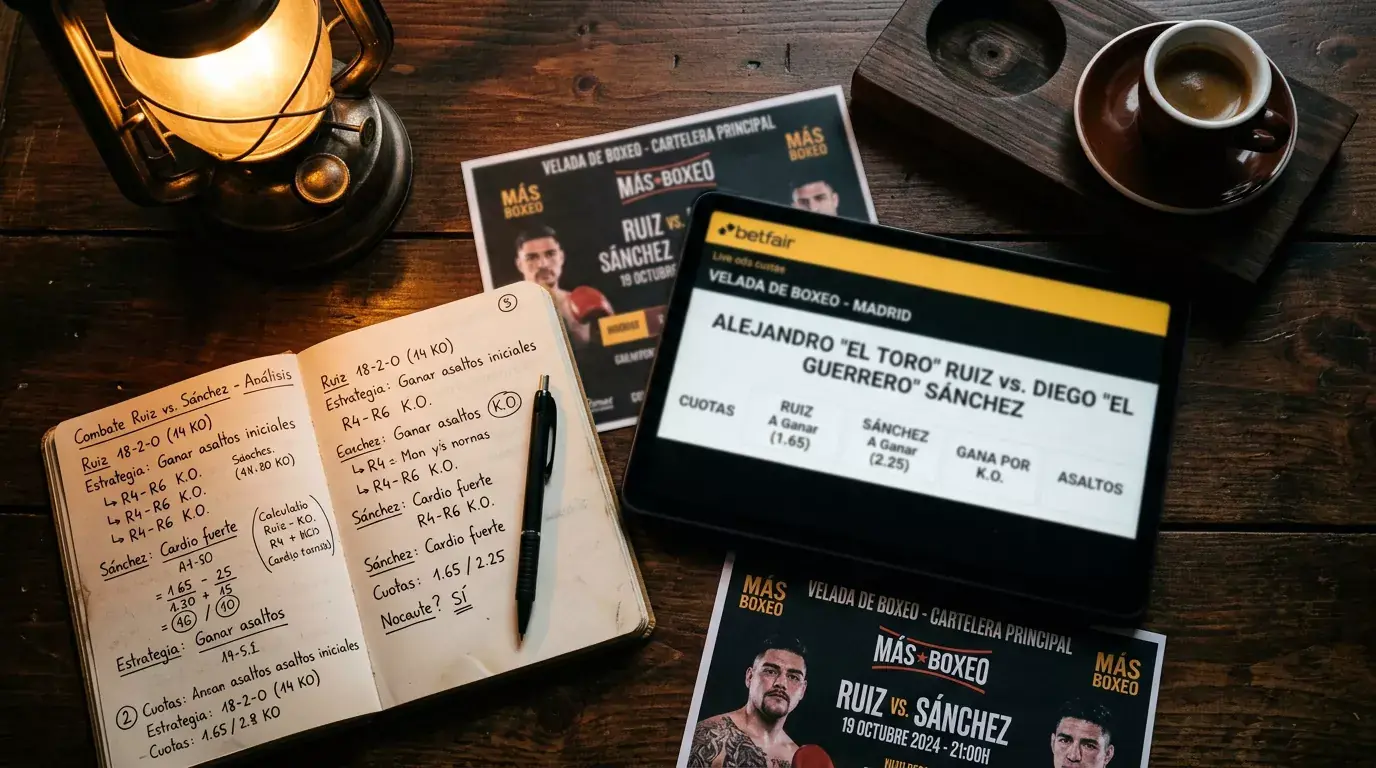 VELADA DE BOXEO - CARTELERA PRINCIPAL
MÁS BOXEO
MÁS BOXEO
MÁS BOXEO
RUIZ VS.
SÁNCHEZ
19 OCTUBRE
betfair
Live ods custes
VELADA DE BOXEO - MADRID
ALEJANDRO "EL TORO" RUIZ vs. DIEGO "EL
GUERRERO" SÁNCHEZ
CUOTAS
RUIZ
A Ganar
(1.65)
SÁNCHEZ
A Ganar
(2.25)
GANA POR
K.O.
ASALTOS
Combate Ruiz vs. Sánchez - Análisis
Ruiz 18-2-0 (14 KO)
Estrategia: Ganar asaltos iniciales
↳ R4-R6 K.O.
↳ R4-R6 K.O.
↳ R4-R6 K.O.
Sánchez: Cardio fuerte
A1-50
= 1.65 - 25
1.30 + 15
= 46 / 10
Estrategia: Ganar asaltos
19-5.1
2 Cuotas: Ancan asaltos asaltos iniciales
Estrategia: 18-2-0 (14 KO)
Cuotas: 1.65 / 2.8 KO
Calculatio
R4 +
Cardio
5
Ruiz 18-2-0 (14 KO)
Estrategia: Ganar asaltos iniciales
R4-R6 K.O.
Eanchez: Ganar asaltos K.O
↳ R4 = Mon y's nornas
↳ R4-R6 K.O.
Sánchez: Cardio fuerte
R4-R6 K.O.
Sánchez: Cardio fuerte
Cuotas: 1.65 / 2.25
Nocaute? SÍ
MÁS BOXEO
VELADA DE BOXEO - CARTELERA PRINCIPAL
MÁS BOXEO
MÁS BOXEO
RUIZ VS. SÁNCHEZ
19 OCTUBRE 2024 - 21:00H